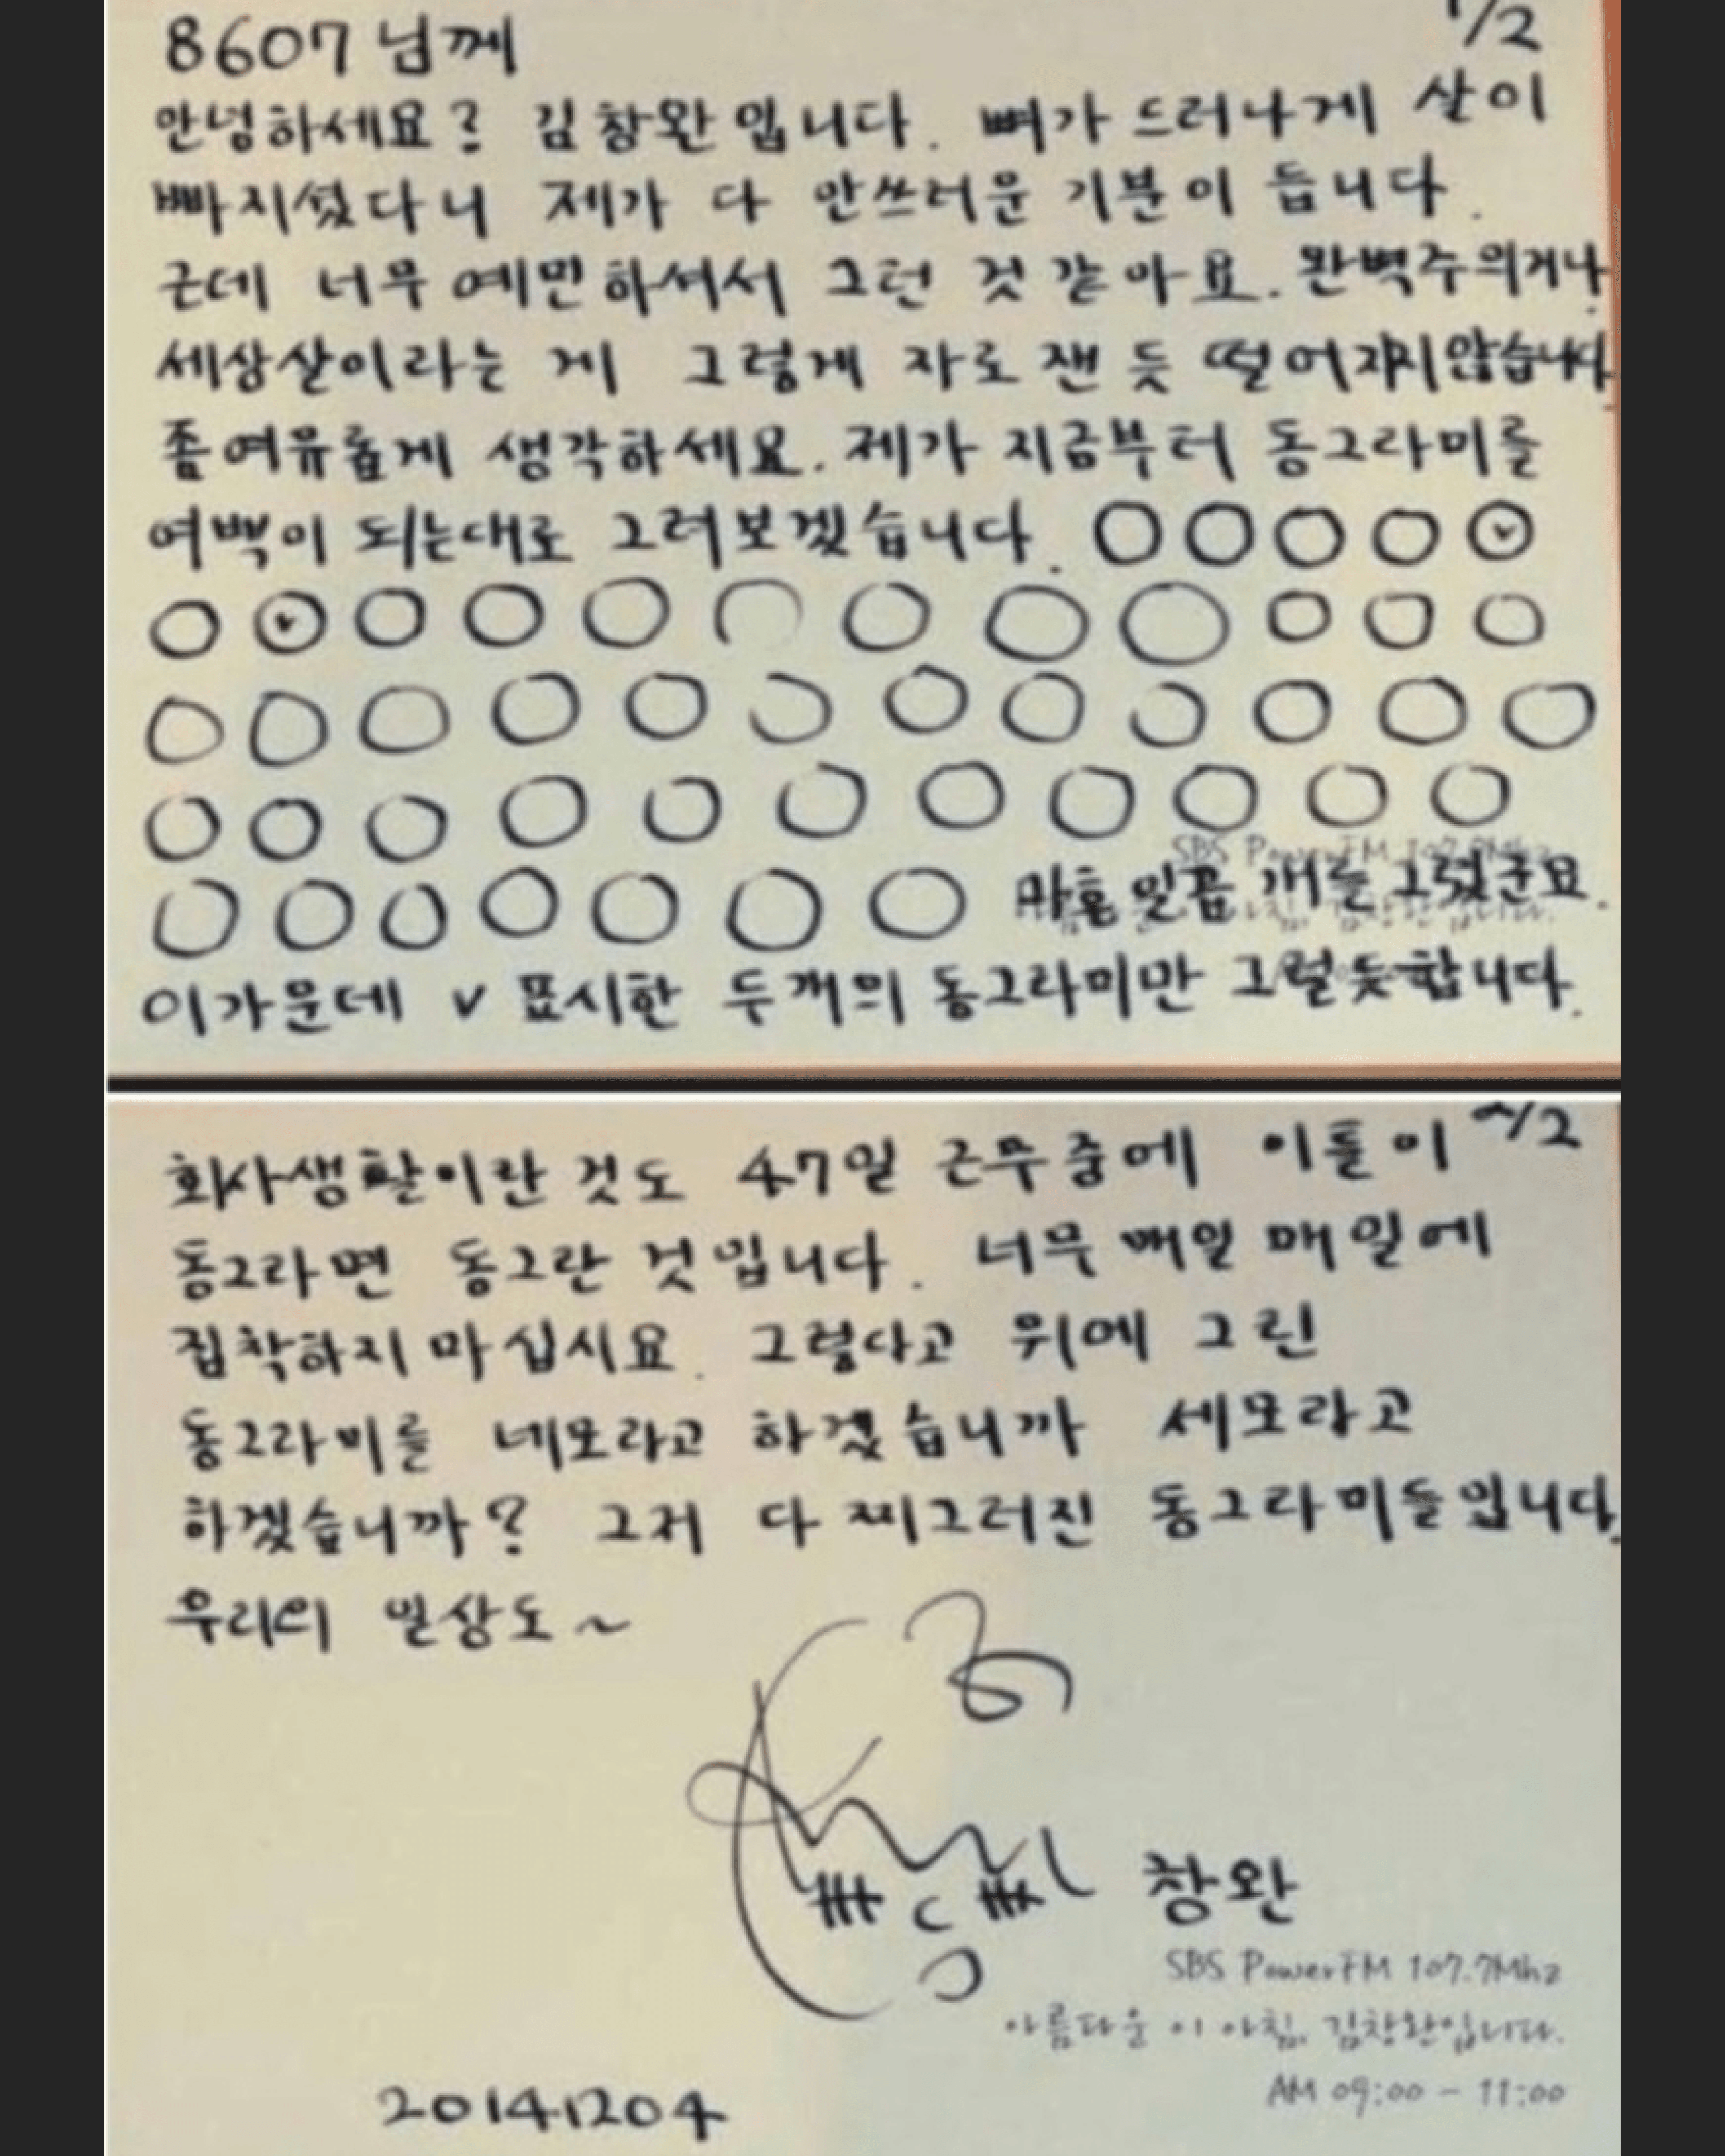 8607 님께
1/2
안녕하세요? 김창완입니다. 뼈가 드러나게 살이
빠지셨다니 제가 다 안쓰러운 기분이 듭니다.
근데 너무 예민하셔서 그런 것 같아요. 완벽주의거나.
세상살이라는 게 그렇게 자로 잰 듯 떨어지지 않습니다
좀 여유롭게 생각하세요. 제가 지금부터 동그라미를
여백이 되는대로 그려보겠습니다.
마흔 일곱 개를 그렸군요.
이가운데 v 표시한 두개의 동그라미만 그럴듯합니다.
2/2
회사생활이란 것도 47일 근무 중에 이틀이
동그라면 동그란 것입니다. 너무 매일 매일에
집착하지 마십시요. 그렇다고 위에 그린
동그라미를 네모라고 하겠습니까 세모라고
하겠습니까? 그저 다 찌그러진 동그라미들입니다.
우리의 일상도~
창완
SBS PowerFM 107.7Mhz
아름다운 이 아침, 김창완입니다.
AM 09:00 - 11:00
20141204